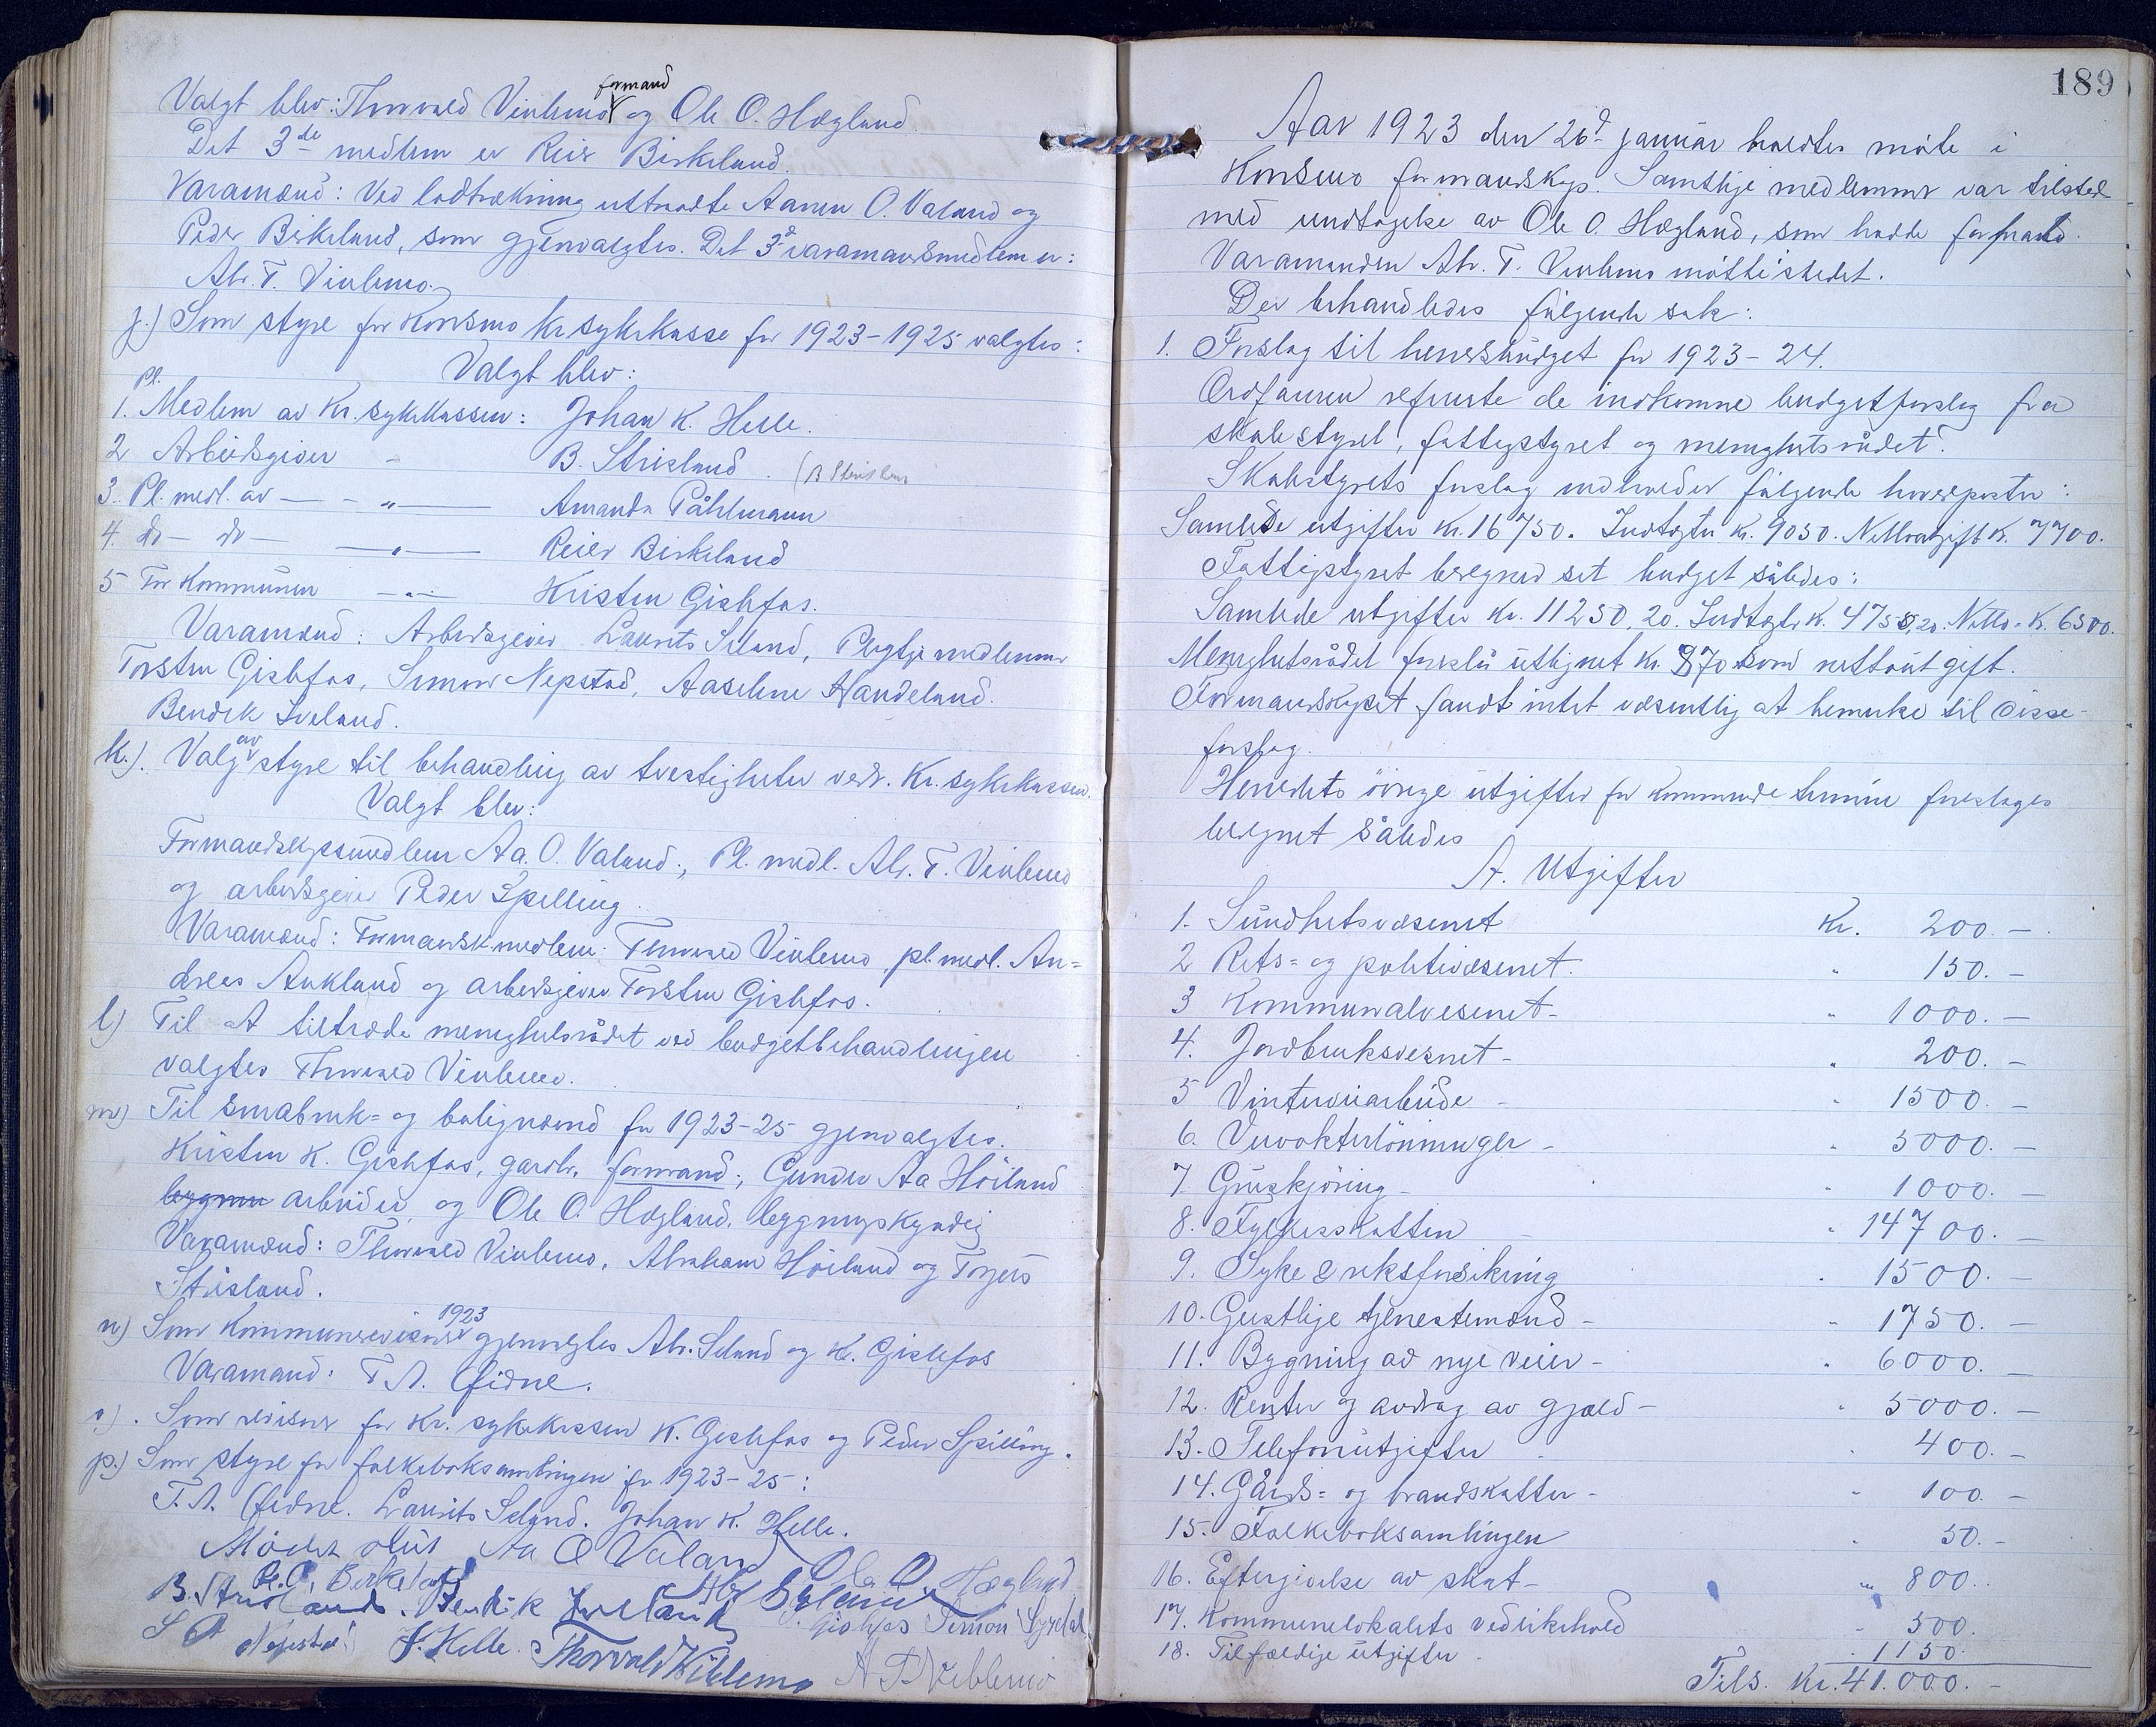 Valgt blev: Thorvald Viblemo formand og Ole O. Hægland.
Det 3de medlem er Reier Birkeland.
Varamænd: Ved lodtrækning uttraadte Aanen O. Valand og
Peder Birkeland, som gjenvalgtes. Det 3d varamandsmedlem er:
Abr. T. Viblemo.
j.) Som styre for Konsmo Kr.sykekasse for 1923-1925 valgtes:
Valgt blev:
1. Pl. Medlem av Kr. sykekassen: Johan K. Helle.
2 Arbeidsgiver - B. Strisland. (B Strisland
3. Pl. medl. av — - „ — Amanda Påhlmann
4. do — do — — „ — Reier Birkeland
5 For Kommunen - „ - Kristen Gislefos.
Varamænd: Arbeidsgiver Laurits Seland, Pligtige medlemmer
Torsten Gislefos, Simon Nepstad, Aaseline Handeland.
Bendik Iveland.
k.). Valg av styre til behandling av tvistigheter vedr. Kr. sykekassen.
Valgt blev:
Formandskapsmedlem Aa. O. Valand; Pl. medl. Abr. T. Viblemo
og arbeidsgiver Peder Spilling.
Varamænd: Formandsk.medlem: Thorvald Viblemo, pl. medl. An=
dreas Aukland og arbeidsgiver Torsten Gislefos.
l) Til at tiltræde menighetsrådet ved budgetbehandlingen
valgtes Thorvald Viblemo.
m) Til småbruk= og bolignævnd for 1923-25 gjenvalgtes.
Kristen K. Gislefos, gardbr. formand; Gunder Aa Höiland
bygnin arbeider, og Ole O. Hægland, bygningskyndig
Varamænd: Thorvald Viblemo, Abraham Höiland og Torjus
Strisland.
n) Som Kommunerevisorer 1923 gjenvalgtes Abr. Seland og K. Gislefos
Varamand: T. A. Eidne.
o). Som revisorer for Kr. sykekassen K. Gislefos og Peder Spilling.
p.) Som styre for folkeboksamlingen for 1923-25:
T. A. Eidne. Laurits Seland. Johan K. Helle.
Mödet slut Aa O Valand Ole O Hægland
Re. O. Birkeland
B. Strisland. Bendik Iveland Gislefos Simon
S A Nepstad J. Helle. Thorvald Viblemo A T Viblemo
189
Aar 1923 den 26d januar holdtes möte i
Konsmo formandskap. Samtlige medlemmer var tilstede
med undtagelse av Ole O. Hægland, som hadde forfald.
Varamanden Abr. T. Viblemo mötte istedet.
Der behandledes fölgende sak:
1. Forslag til herredsbudget for 1923-24.
Ordföreren refererte de indkomne budgetforslag fra
skolestyret, fattigstyret og menighetsrådet.
Skolestyrets forslag indholder fölgende hovedposter:
Samlede utgifter kr. 16750. Indtægter kr. 9050. Nettoutgift kr. 7700.
Fattigstyret beregner set budget således:
Samlede utgifter kr. 11250,20. Indtægter k. 4750,20. Netto - K. 6500.
Menighetsrådet foreslår utlignet kr. 870 som nettoutgift.
Formandskapet fandt intet væsentlig at bemerke til disse
forslag.
Herredets övrige utgifter for kommende termin foreslåes
beregnet således
A. Utgifter
1. Sundhetsvæsenet Kr. 200. -
2 Rets= og politivæsenet. " 150. -
3 Kommunalvesenet - " 1000. -
4. Jordbruksvesnet - " 200. -
5 Vinterveiarbeide - " 1500. -
6. Veivokterlönninger - " 5000. -
7. Gruskjöring - " 1000. -
8. Fylkesskatten - " 14700. -
9. Syke & riksforsikring " 1500. -
10. Geistlige tjenestemænd - " 1750. -
11. Bygning av nye veier - " 6000. -
12. Renter og avdrag av gjæld - " 5000. -
13. Telefonutgifter " 400. -
14. Gårds= og brandskatter - " 100. -
15. Folkeboksamlingen " 50. -
16. Eftergivelse av skat - " 800. -
17. Kommunelokalets vedlikehold - 500.
18. Tilfældige utgifter - . 1150.
Tils. Kr. 41.000. -